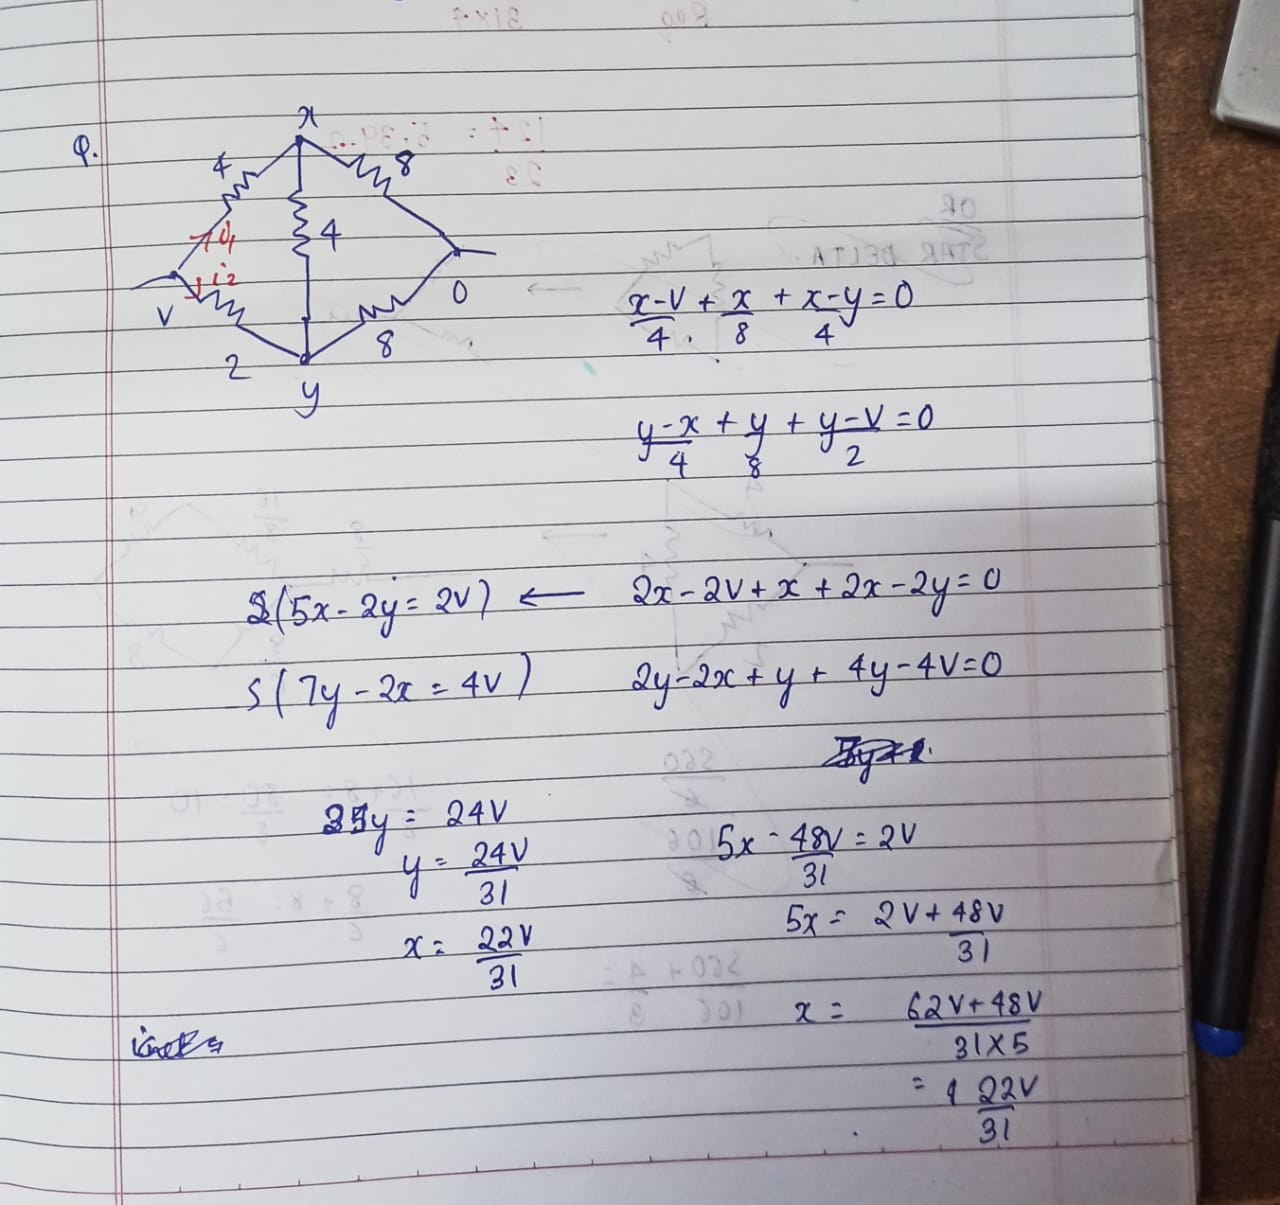 Q.
x
4
8
i₁
4
i₂
V
0
2
8
y
x-V/4 + x/8 + x-y/4 = 0
y-x/4 + y/8 + y-V/2 = 0
2(5x - 2y = 2V) ← 2x - 2V + x + 2x - 2y = 0
5(7y - 2x = 4V) 2y - 2x + y + 4y - 4V = 0
31y = 24V
y = 24V/31
x = 22V/31
5x - 48V/31 = 2V
5x = 2V + 48V/31
x = 62V + 48V/31 x 5
= 22V/31
OR
STAR DELTA